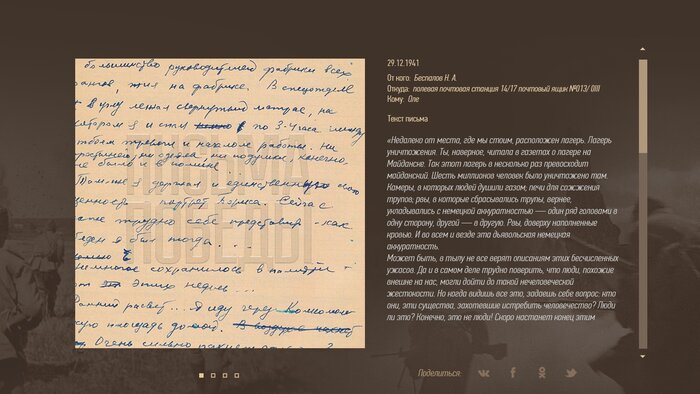 большинство руководителей фабрики всех
рангов, жил на фабрике. В спецотделе
в углу лежал свернутый матрас, на
котором я и спал по 3-4 часа между
отбоем тревоги и началом работы. Ни
простыней, ни одеяла, ни подушки, конечно
не было и в помине ...
Там же я держал и единственную мою
ценность портрет Бориса. Сейчас
даже трудно себе представить - как
беден я был тогда ...
сохранилось в памяти -
от этих недель ...
рассвет... Я иду через Комсомоль
скую площадь домой.
Очень сильно
ПИСЬМА
ПОБЕДЫ
29.12.1941
От кого: Беспалов Н. А.
Откуда: полевая почтовая станция 14/17 почтовый ящик №013/ 0III
Кому: Оле
Текст письма
«Недалеко от места, где мы стоим, расположен лагерь. Лагерь
уничтожения. Ты, наверное, читала в газетах о лагере на
Майданке. Так этот лагерь в несколько раз превосходит
майданский. Шесть миллионов человек было уничтожено там.
Камеры, в которых людей душили газом, печи для сожжения
трупов; рвы, в которые сбрасывались трупы, вернее,
укладывались с немецкой аккуратностью — один ряд головами в
одну сторону, другой — в другую. Рвы, доверху наполненные
кровью. И во всем и везде эта дьявольская немецкая
аккуратность.
Может быть, в тылу не все верят описаниям этих бесчисленных
ужасов. Да и в самом деле трудно поверить, что люди, похожие
внешне на нас, могли дойти до такой нечеловеческой
жестокости. Но когда видишь все это, задаешь себе вопрос: кто
они, эти существа, захотевшие истребить человечество? Люди
ли это? Конечно, это не люди! Скоро настанет конец этим
Поделиться: